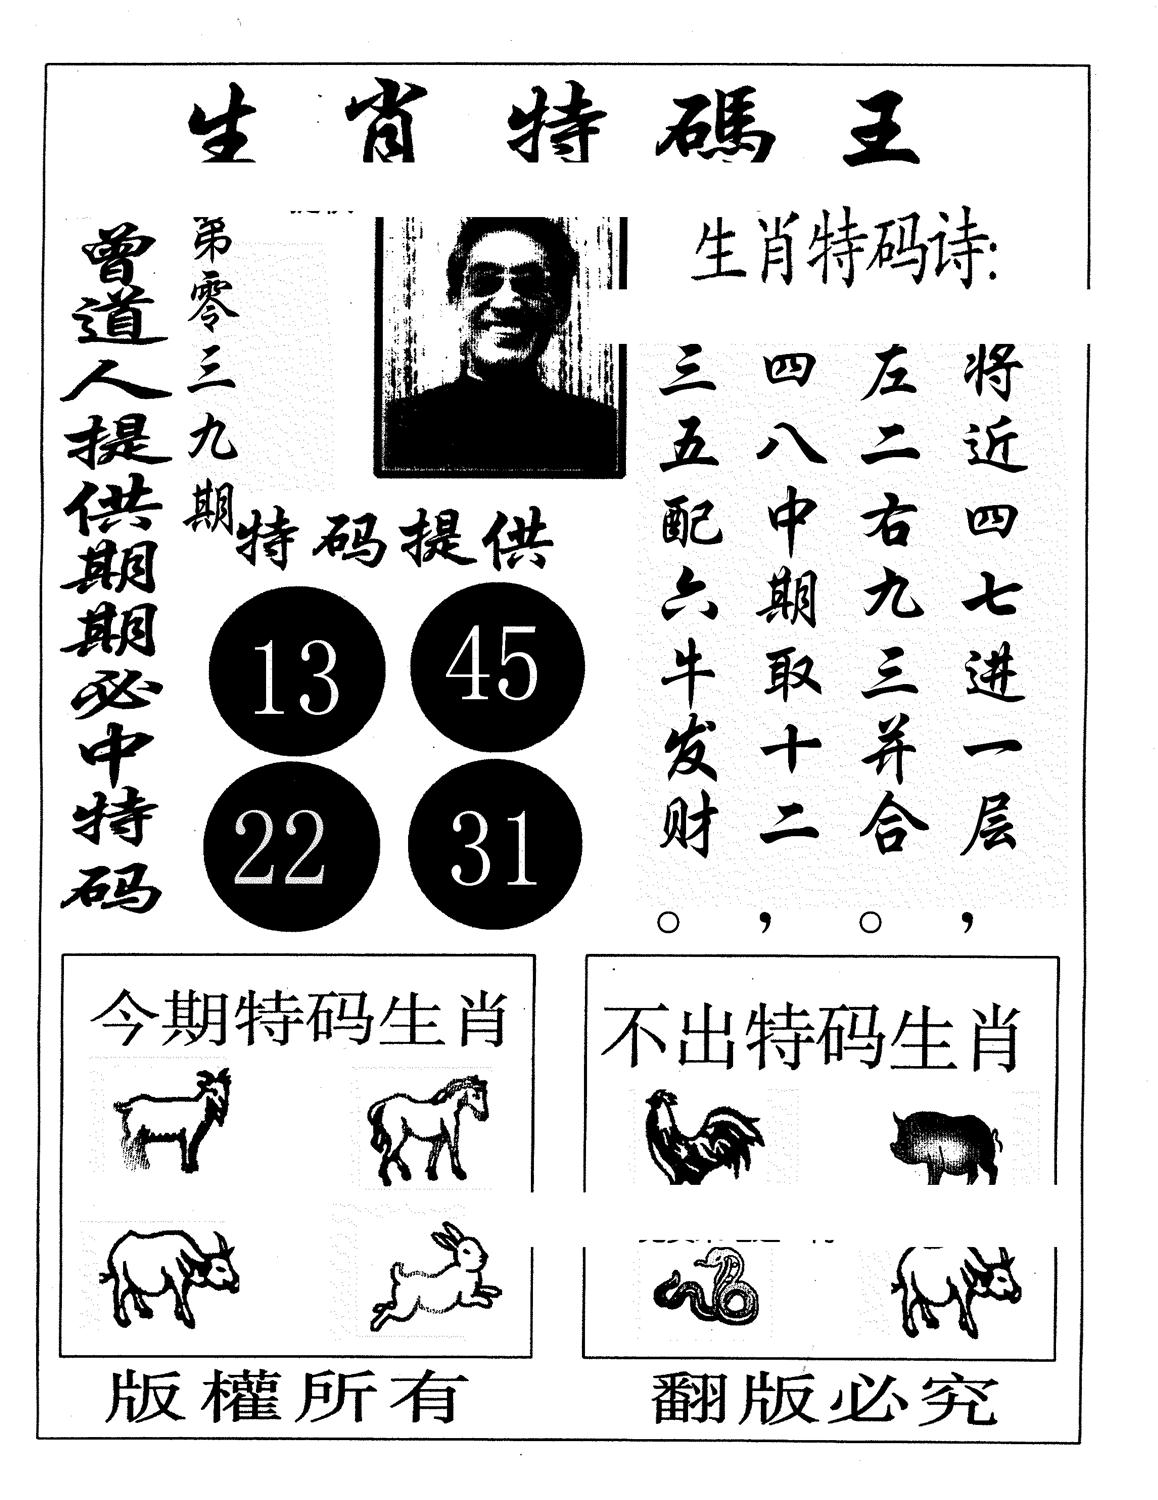 生肖特碼王
曾道人提供期期必中特码
第零三九期
生肖特码诗:
将近四七进一层，
左二右九三并合。
四八中期取十二，
三五配六牛发财。
特码提供
13 45
22 31
今期特码生肖
不出特码生肖
版權所有
翻版必究